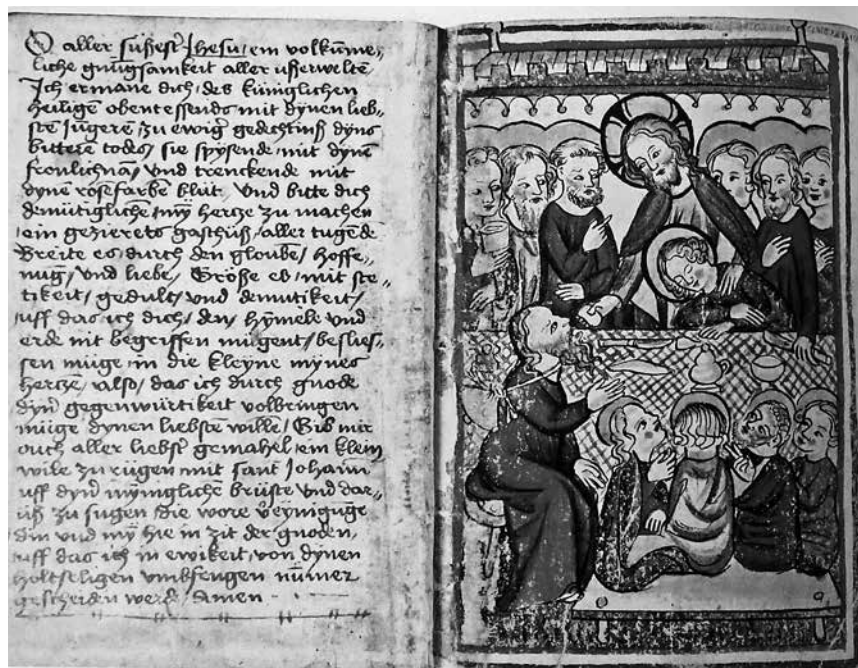 O aller süßest' Jhesu / ein volkume„
liche gnůgsamkeit aller usserwelte /
Ich ermane dich / des küniglichen
heiligē obentessends mit dynen lieb„
stē Jügerē / zu ewig' gedechtniß dyns
bitterē todes / sie spysende / mit dynē
fronlichnā / vnd trenckende mit
dynē rosefarbē blůt / Vnd bitte dich
demütiglichē / my hertze zu machen
ein gezierets gasthuß / aller tugēde
Breite es / durch den gloubē / hoffe„
nūg / vnd liebe / Größe es / mit ste„
tikeit / gedult / vnd demutikeit /
uff das ich dich / den / hymele vnd
erde nit begriffen mügent / beslies„
sen müge / in die kleyne mynes
hertze / also / das ich durch gnode
dyn' gegenwürtikeit volbringen
müge dynen liebste wille / Gib mir
ouch aller liebst' gemahel / ein klein
wile zu rügen mit sant Johann
uff dyn' myniglichē brüste vnd dar„
uß zu sugen / die wore v'eynigūge
din vnd my hie in zit der gnoden /
uff das ich in ewikeit / von dynen
holtseligen vmbfengen nümer
gescheiden werde / Amen